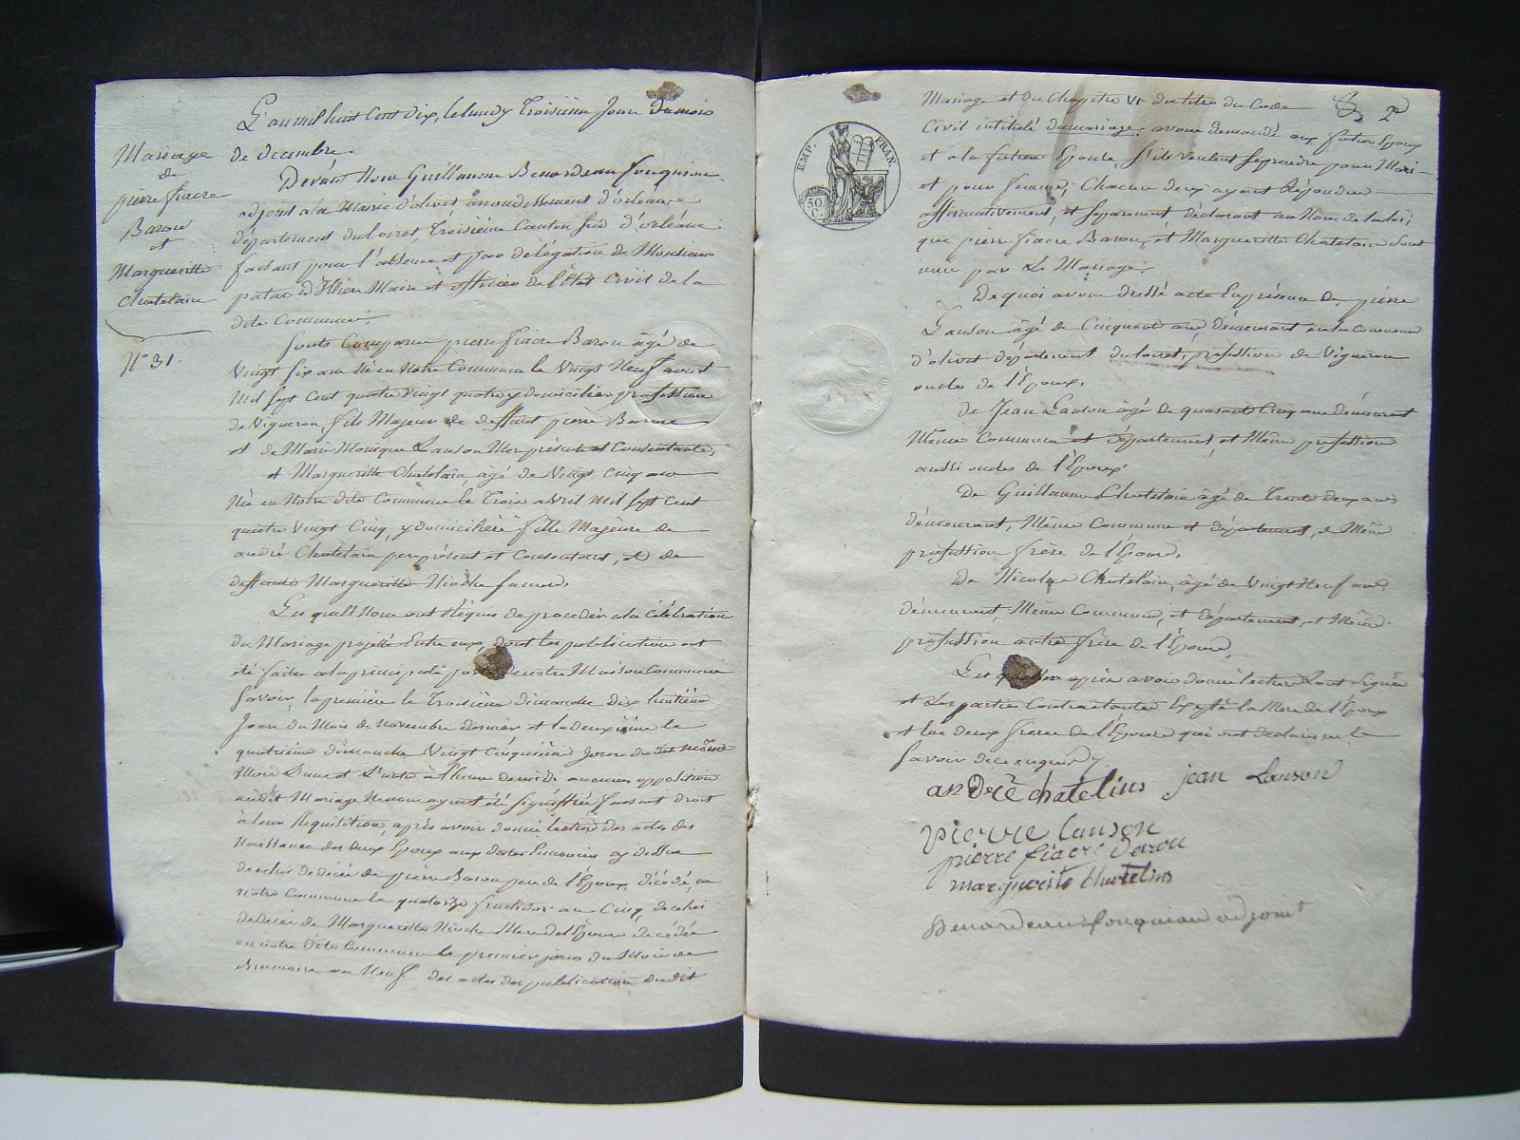 Mariage
de
pierre fiacre
Baron
et
Margueritte
Chatelain
N° 31.
L'an mil huit Cent dix, le lundy Troisième Jour Du mois
de decembre.
Devant Nous Guillaume Benardeau fouqueau
adjoint a la Mairie d'olivet arrondissement d'orleans
département du loiret, Troisième Canton sud d'orléans
faisant pour l'absence et par délégation de Monsieur
Maire et officier de l'état Civil de la
dite Commune.
sont Comparus pierre fiacre Baron âgé de
Vingt six ans né en Notre Commune le Vingt Neuf aoust
Mil sept Cent quatre Vingt quatre y domicilié profession
de Vigneron, fils Majeur de deffunt pierre Baron
et de Marie Monique Lanson Mere présente et Consentante,
et Margueritte Chatelain, âgé de Vingt Cinq ans
Née en Notre dite Commune le Trois avril Mil sept Cent
quatre Vingt Cinq, y domiciliéé fille Majeure de
andré Chatelain pere présent et Consentant, et de
deffunte Margueritte
Les quels Nous ont Réquis de proceder a la Célébration
du Mariage projetté Entre eux, dont les publications ont
été faites a la principale porte de notre Maison Commune
savoir, la premiere le Troisieme dimanche dix huitième
Jour du Mois de Novembre dernier et la deuxième le
quatrieme dimanche Vingt Cinquième Jour du dit même
Mois L'une et L'autre à l'heure de midi aucunes opposition
audit Mariage Ne nous ayant été signiffiée faisant droit
à leur Requisition, après avoir donné lecture des actes de
Naissance des deux Epoux aux dates Enoncées cy dessus
de celui de décès de pierre Baron pere de l'Epoux, décédé, en
notre Commune le quatorze fructidor an Cinq de celui
de décès de Margueritte Mere de l'Epouse decédée
en notre dite Commune le premier jour du Mois de
Brumaire an Neuf des actes de publication dudit
2
EMP. FRAN
50
C.
Mariage et du Chapitre VI du titre du Code
Civil intitulé du mariage; avons demandé aux futur Epoux
et a la future Epouse, s'ils veulent se prendre pour Mari
et pour femme; Chacun deux ayant Répondu
affirmativement, et séparément déclarons au Nom de la loi,
que pierre fiacre Baron, et Margueritte Chatelain sont
unis par Le Mariage.
De quoi avons dressé acte En présence de pierre
Lanson âgé de Cinquante ans Demeurant en la Commune
d'olivet département du loiret, profession de Vigneron
oncle de l'Epoux,
De Jean Lanson âgé de quarante Cinq ans démeurant
Même Commune et département, et Même profession
aussi oncle de l'Epoux.
De Guillaume Chatelain âgé de Trente deux ans
démeurant, Même Commune et département, et Même
profession frère de l'Epouse,
De Nicolas Chatelain, âgé de Vingt Neuf ans
démeurant Même Commune, et Département, et Même
profession autre frère de l'Epouse,
Les quels après avoir donné lecture L'ont Signé
et Les parties Contractantes Excepté la Mere de l'Epoux
et les deux freres de l'Epouse qui ont declaré ne le
savoir de ce enquis
andré chatelins jean Lanson
pierre lanson
pierre fiacre baron
marguerite Chatelins
Benardeau fouqueau adjoint